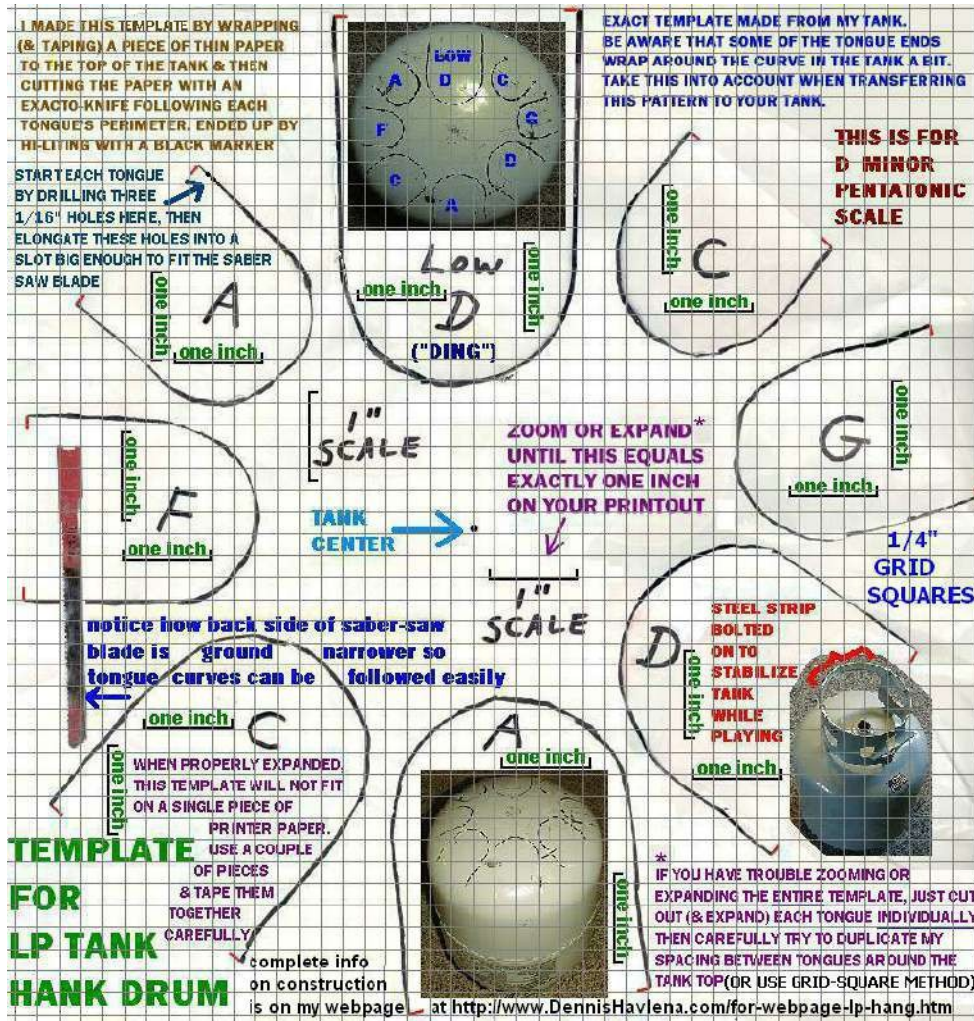 I MADE THIS TEMPLATE BY WRAPPING
(& TAPING) A PIECE OF THIN PAPER
TO THE TOP OF THE TANK & THEN
CUTTING THE PAPER WITH AN
EXACTO-KNIFE FOLLOWING EACH
TONGUE'S PERIMETER. ENDED UP BY
HI-LITING WITH A BLACK MARKER
START EACH TONGUE
BY DRILLING THREE
1/16" HOLES HERE, THEN
ELONGATE THESE HOLES INTO A
SLOT BIG ENOUGH TO FIT THE SABER
SAW BLADE
LOW
A D C
F G
C D
A
EXACT TEMPLATE MADE FROM MY TANK.
BE AWARE THAT SOME OF THE TONGUE ENDS
WRAP AROUND THE CURVE IN THE TANK A BIT.
TAKE THIS INTO ACCOUNT WHEN TRANSFERRING
THIS PATTERN TO YOUR TANK.
THIS IS FOR
D MINOR
PENTATONIC
SCALE
A
one inch
one inch
Low
D
("DING")
one inch
one inch
C
one inch
one inch
G
one inch
one inch
F
one inch
one inch
1"
SCALE
ZOOM OR EXPAND*
UNTIL THIS EQUALS
EXACTLY ONE INCH
ON YOUR PRINTOUT
TANK
CENTER
1"
SCALE
1/4"
GRID
SQUARES
notice how back side of saber-saw
blade is ground narrower so
tongue curves can be followed easily
D
one inch
one inch
STEEL STRIP
BOLTED
ON TO
STABILIZE
TANK
WHILE
PLAYING
C
one inch
one inch
WHEN PROPERLY EXPANDED,
THIS TEMPLATE WILL NOT FIT
ON A SINGLE PIECE OF
PRINTER PAPER.
USE A COUPLE
OF PIECES
& TAPE THEM
TOGETHER
CAREFULLY
A
one inch
one inch
TEMPLATE
FOR
LP TANK
HANK DRUM
*
IF YOU HAVE TROUBLE ZOOMING OR
EXPANDING THE ENTIRE TEMPLATE, JUST CUT
OUT (& EXPAND) EACH TONGUE INDIVIDUALLY
THEN CAREFULLY TRY TO DUPLICATE MY
SPACING BETWEEN TONGUES AROUND THE
TANK TOP (OR USE GRID-SQUARE METHOD)
complete info
on construction
is on my webpage at http://www.DennisHavlena.com/for-webpage-lp-hang.htm